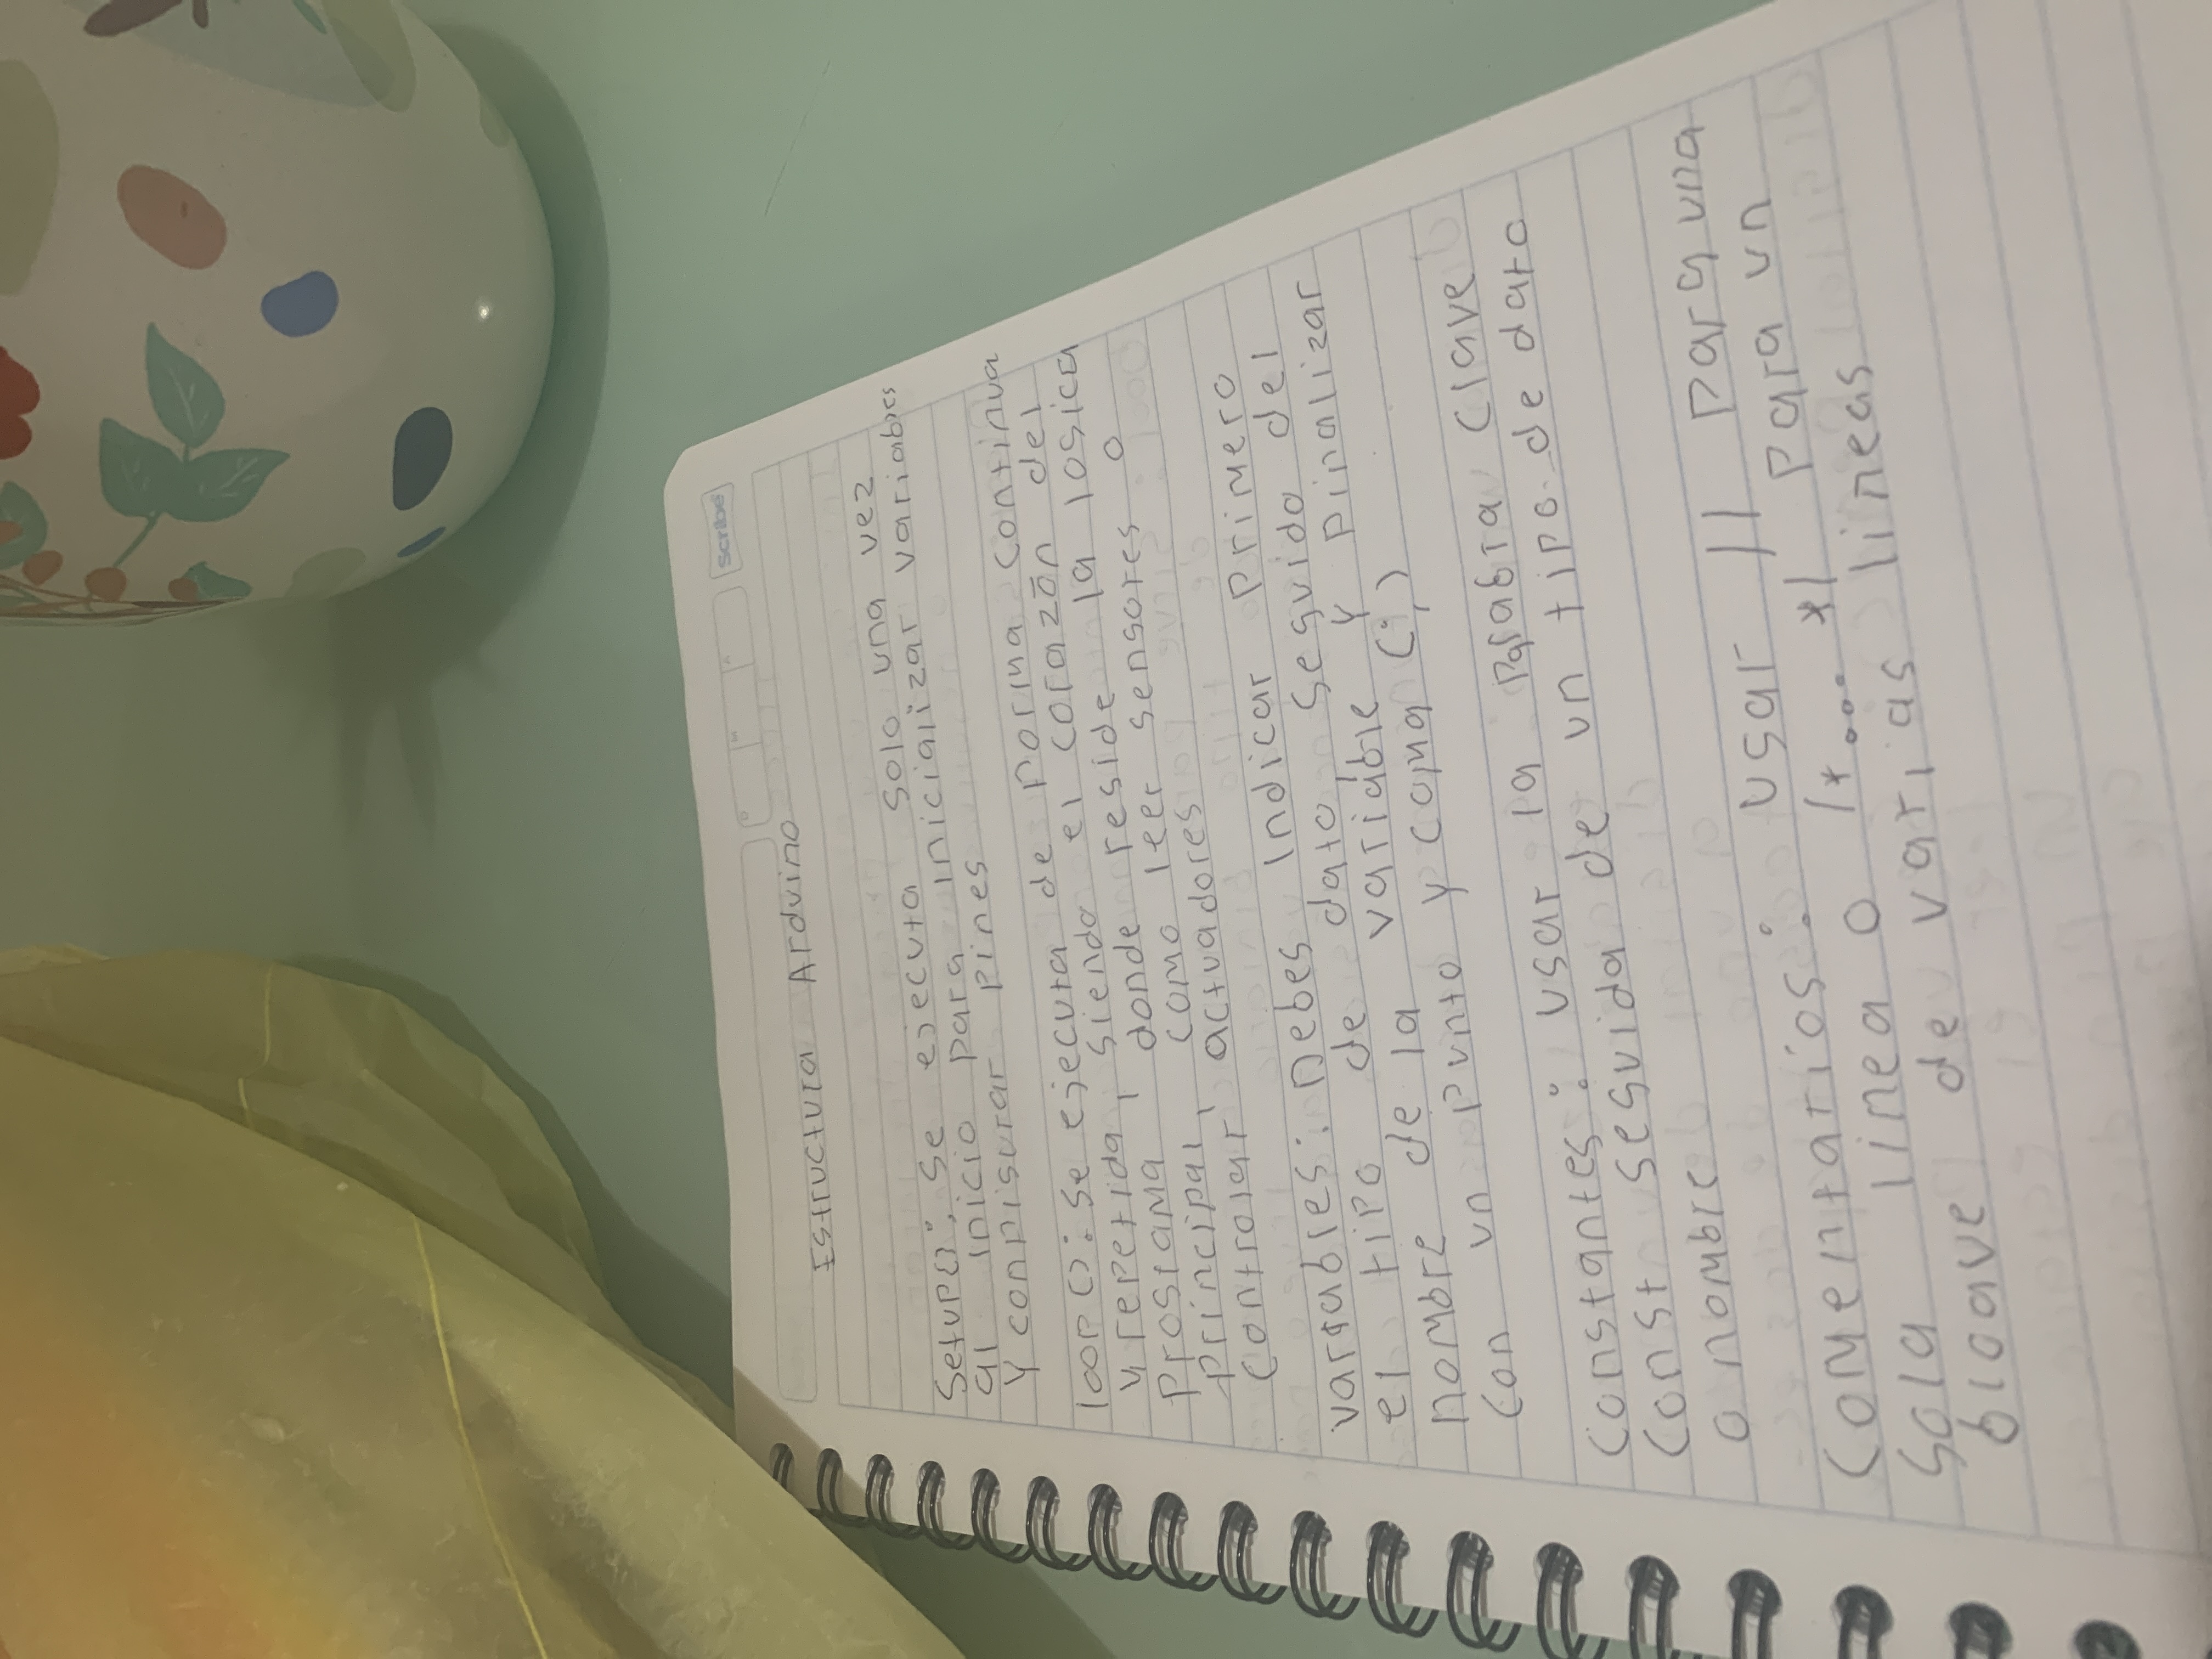 scribe
Estructura Arduino
Setup(): se ejecuta solo una vez
al inicio para inicializar variables
y configurar pines
loop(): se ejecuta de forma continua
y repetida, siendo el corazón del
programa, donde reside la logica
principal, como leer sensores o
controlar actuadores
variables: Debes Indicar primero
el tipo de dato seguido del
nombre de la variable y finalizar
con un punto y coma (;)
Constantes: usar la palabra clave
const seguida de un tipo de dato
o nombre
Comentarios: usar // para una
sola linea o /*... */ para un
bloave de varias lineas